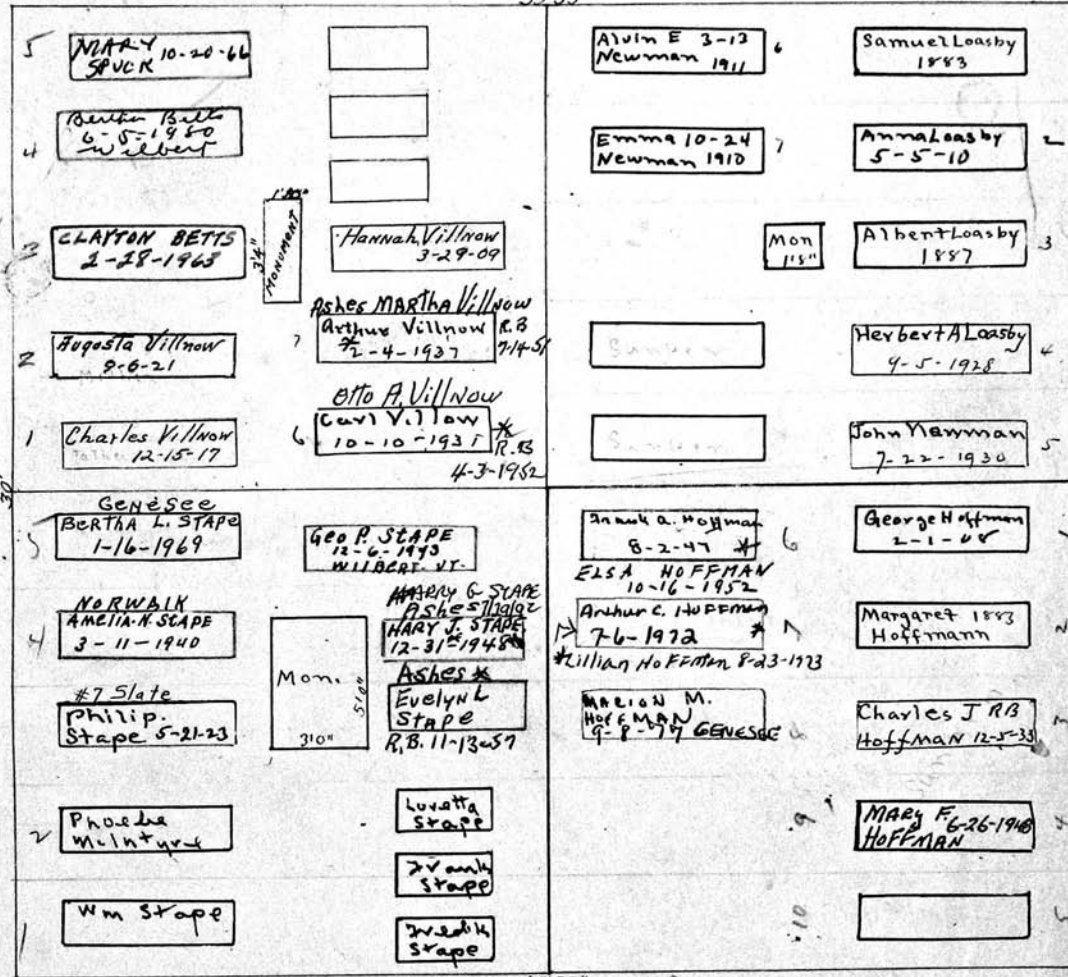 5
MARY 10-20-66
SPUCK
4
Bertha Betts
6-5-1980
Wilbert
3
CLAYTON BETTS
2-28-1963
2
Augusta Villnow
9-6-21
1
Charles Villnow
12-15-17
3'4"
MONUMENT
Hannah Villnow
3-29-09
Ashes MARTHA Villnow
7
Arthur Villnow R.B
2-4-1937 7-14-51
Otto A. Villnow
6
Carl Villow *
10-10-1931 R.B
4-3-1952
Alvin E 3-13 6
Newman 1911
Emma 10-24 7
Newman 1910
Mon
1'8"
Sunken
Sunken
Samuel Loasby
1883
Anna Loasby 2
5-5-10
Albert Loasby 3
1887
Herbert A Loasby 4
9-5-1928
John Newman 5
7-22-1930
30'
GENESEE
5
BERTHA L. STAPE
1-16-1969
NORWALK
4
AMELIA N. STAPE
3-11-1940
#7 Slate
Philip.
Stape 5-21-23
2
Phoebe
McIntyre
1
Wm Stape
Geo P. STAPE
12-6-1973
WILBERT. VT.
Mon.
5'0"
3'0"
HARRY G STAPE
Ashes
HARY J. STAPE
12-31-1948
Ashes *
Evelyn L
STAPE
R.B. 11-13-57
Luretta
Stape
Frank
Stape
Fredk
Stape
Frank A. Hoffman 6
8-2-47 *
ELSA HOFFMAN
10-16-1952
Arthur C. HOFFMAN 7
7-6-1972 *
*Lillian HOFFMAN 8-23-1973
MARION M.
HOFFMAN 8
9-8-77 GENESEE
9
10
George Hoffman 1
2-1-08
Margaret 1883 2
Hoffmann
Charles J RB 3
Hoffman 12-5-33
MARY F. 6-26-1948 4
HOFFMAN
5